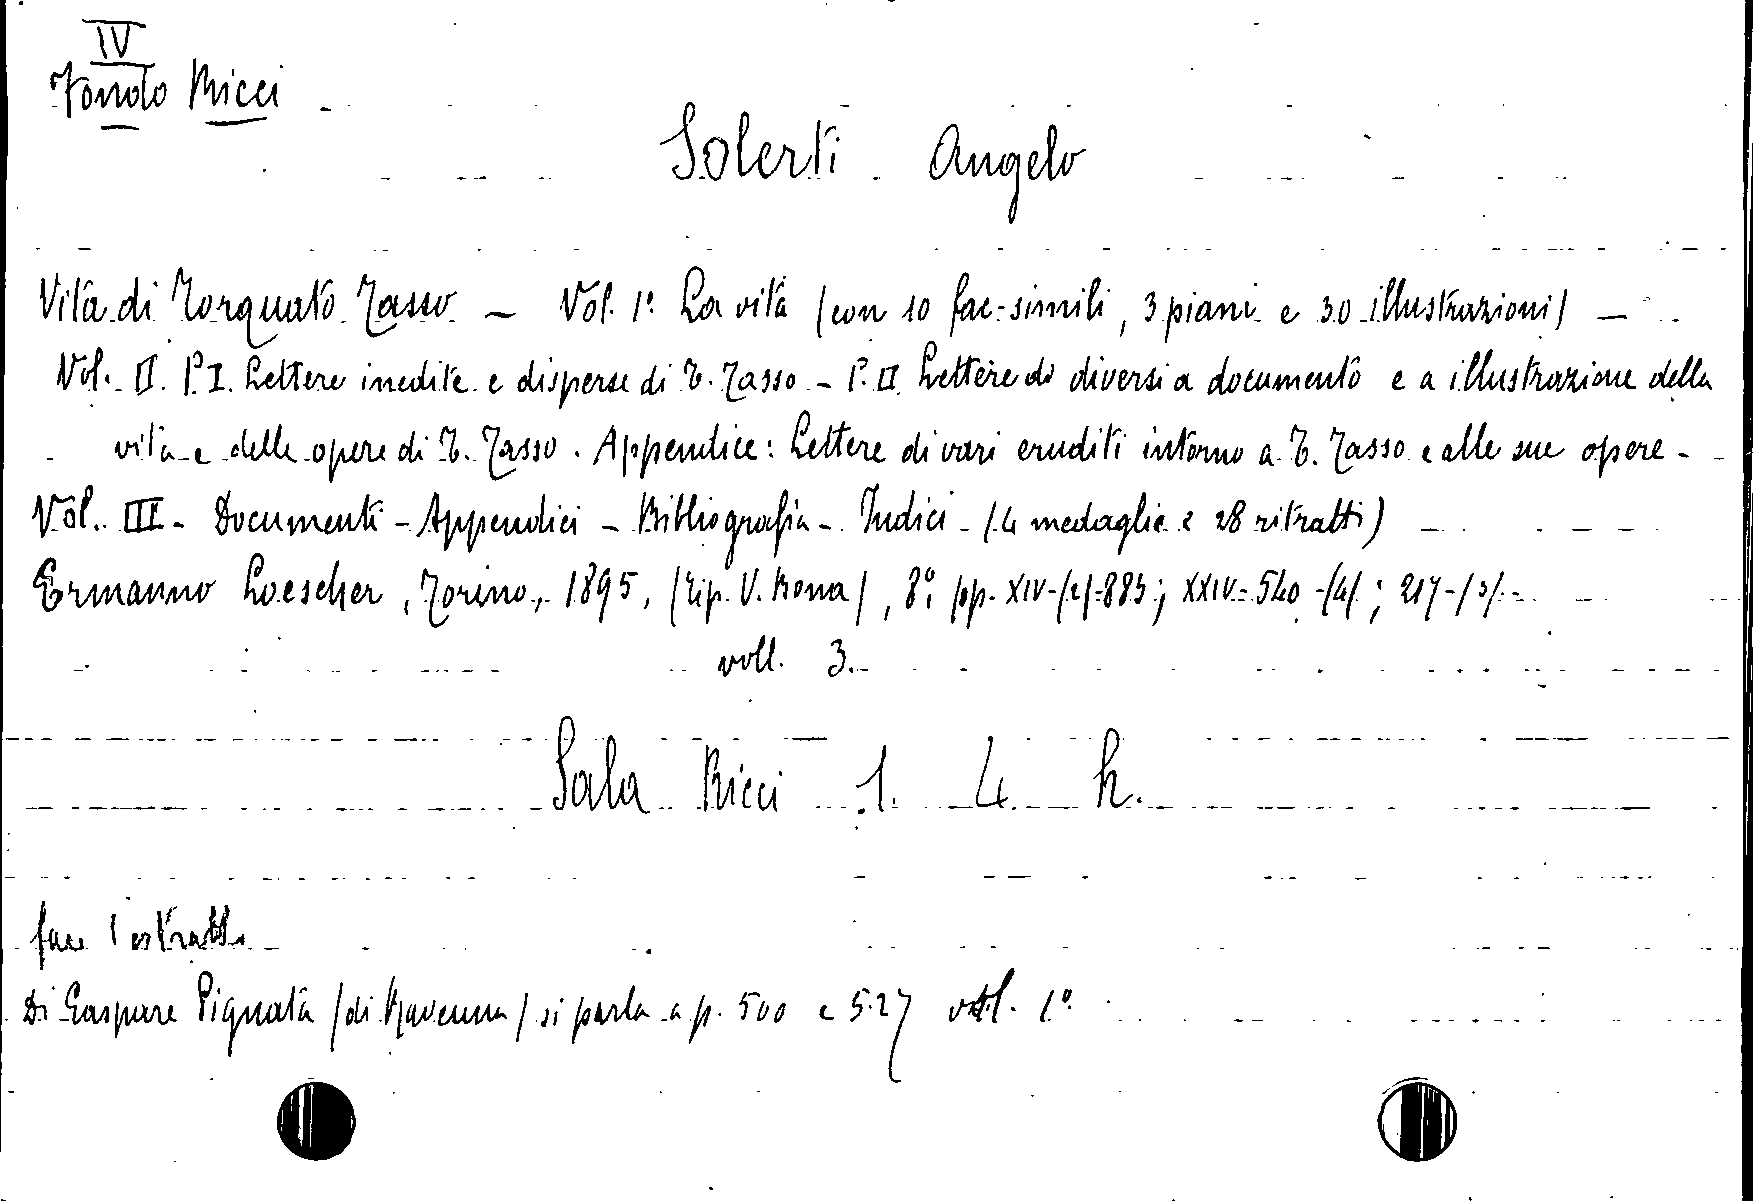 IV
Fondo Ricci
Solerti Angelo
Vita di Torquato Tasso — Vol. 1º La vita (con 10 fac-simili, 3 piani e 30 illustrazioni) —
Vol. II. P. I. Lettere inedite e disperse di T. Tasso - P. II Lettere di diversi a documento e a illustrazione della
vita e delle opere di T. Tasso. Appendice: Lettere di vari eruditi intorno a T. Tasso e alle sue opere -
Vol. III - Documenti - Appendici - Bibliografia - Indici - (4 medaglie e 28 ritratti)
Ermanno Loescher, Torino, 1895, (Tip. V. Bona), 8º, pp. XIV-(2)-883; XXIV-540-(4); 217-(3)-
voll. 3.
Sala Ricci 1. 4. h.
Di Gaspare Pignata (di Ravenna) si parla a p. 500 e 527 vol. 1º